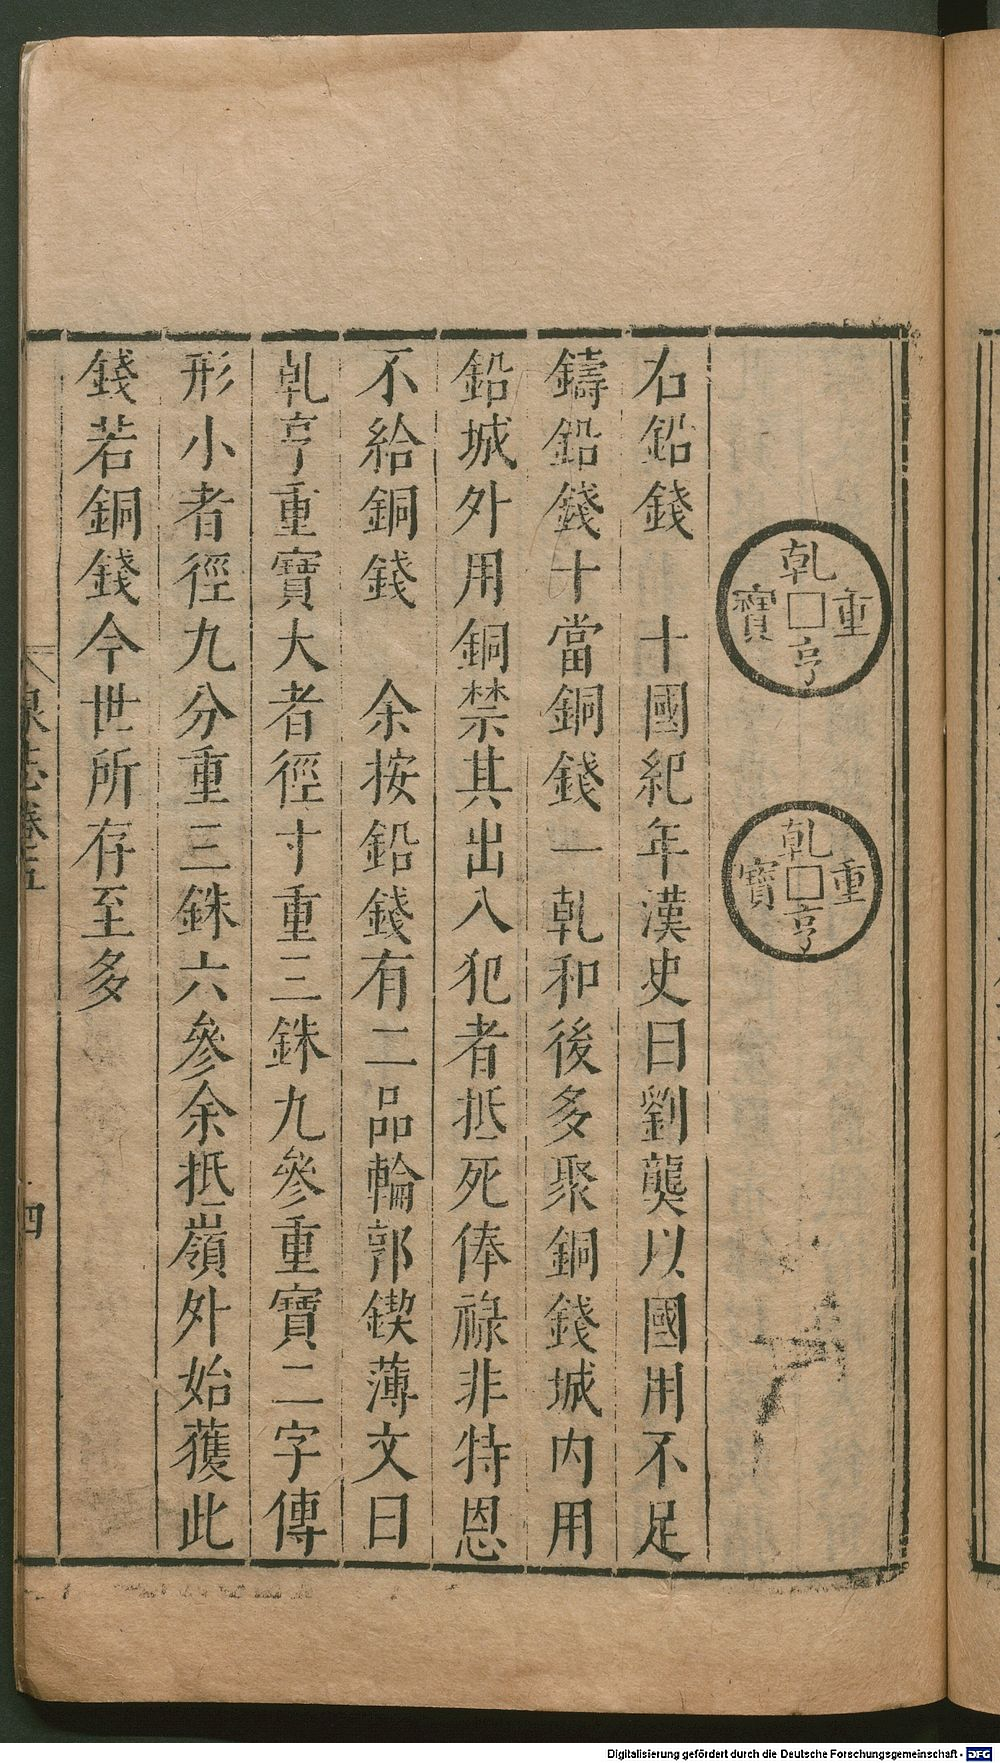 乹亨重寶
乹亨重寶
右鉛錢　十國紀年漢史曰劉龑以國用不足
鑄鉛錢十當銅錢一乹和後多聚銅錢城内用
鉛城外用銅禁其出入犯者抵死俸祿非特恩
不給銅錢　余按鉛錢有二品輪郭鍥薄文曰
乹亨重寶大者徑寸重三銖九參重寶二字傳
形小者徑九分重三銖六參余抵嶺外始獲此
錢若銅錢今世所存至多
泉志卷五
四
Digitalisierung gefördert durch die Deutsche Forschungsgemeinschaft - DFG